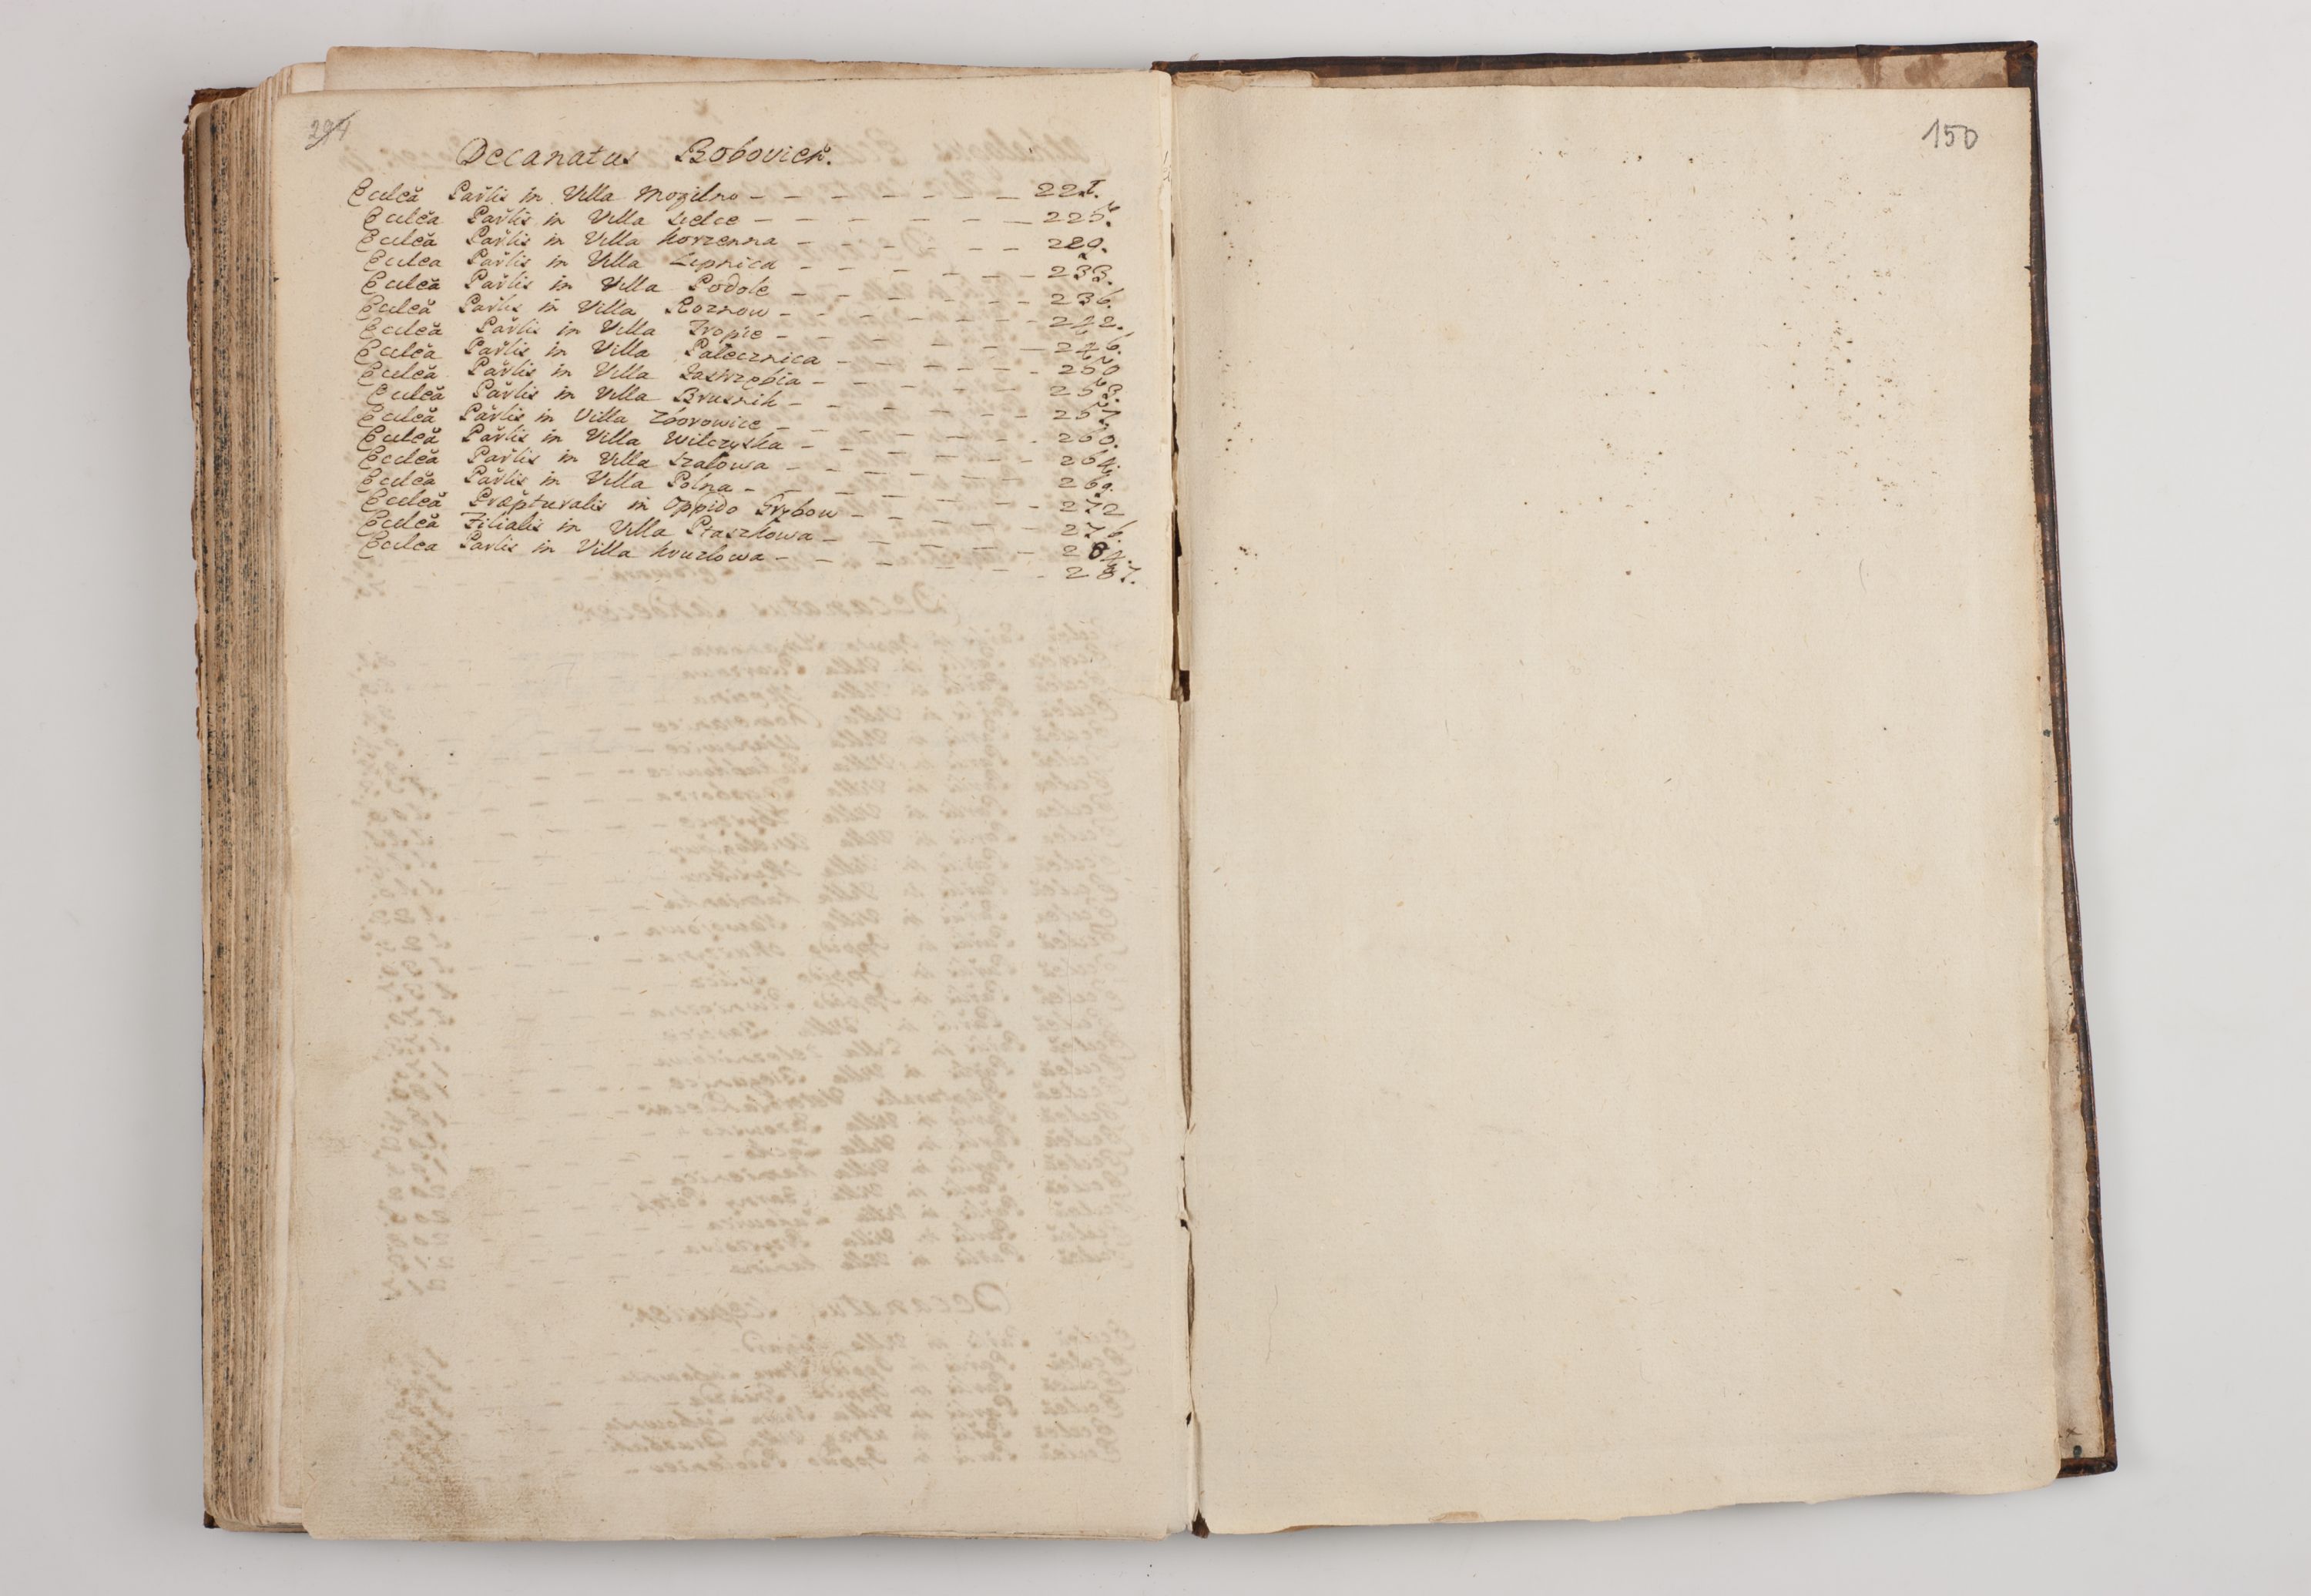 294
150
Decanatus Boboviecň.
Ecclča Parlis in Villa Mogilno – – – – – – – 221.
Ecclča Parlis in Villa Sielce – – – – – – – 225.
Ecclča Parlis in Villa Korzenna – – – – – – 229.
Ecclča Parlis in Villa Lipnica – – – – – – – 233.
Ecclča Parlis in Villa Podole – – – – – – – 236.
Ecclča Parlis in Villa Roznow – – – – – – – 242.
Ecclča Parlis in Villa Tropie – – – – – – – 246.
Ecclča Parlis in Villa Palecznica – – – – – – 250
Ecclča Parlis in Villa Jastrzębia – – – – – – 253.
Ecclča Parlis in Villa Brusnik – – – – – – – 257
Ecclča Parlis in Villa Zborowice – – – – – – 260.
Ecclča Parlis in Villa Wilczyska – – – – – – 264.
Ecclča Parlis in Villa Szalowa – – – – – – – 269.
Ecclča Parlis in Villa Polna – – – – – – – 272
Ecclča Præpturalis in Oppido Grybow – – – – – 276.
Ecclča Filialis in Villa Ptaszkowa – – – – – – 284.
Ecclča Parlis in Villa Kruzlowa – – – – – – – 287.